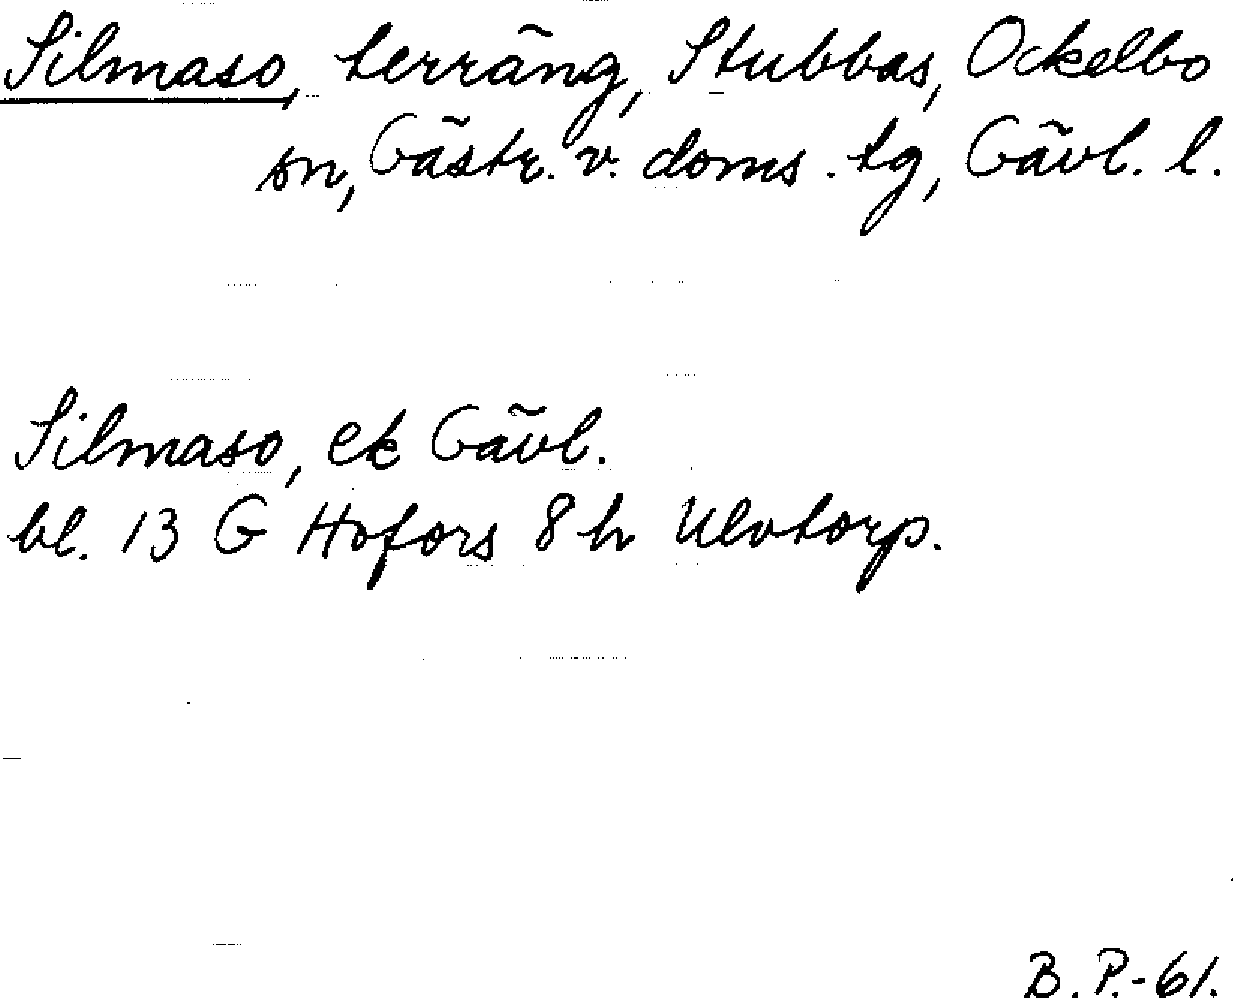 Silmaso, terräng, Stubbas, Ockelbo
sn, Gästr. v. doms. tg, Gävl. l.
Silmaso, ek Gävl.
bl. 13 G Hofors 8 h Ulvtorp.
B. P.-61.